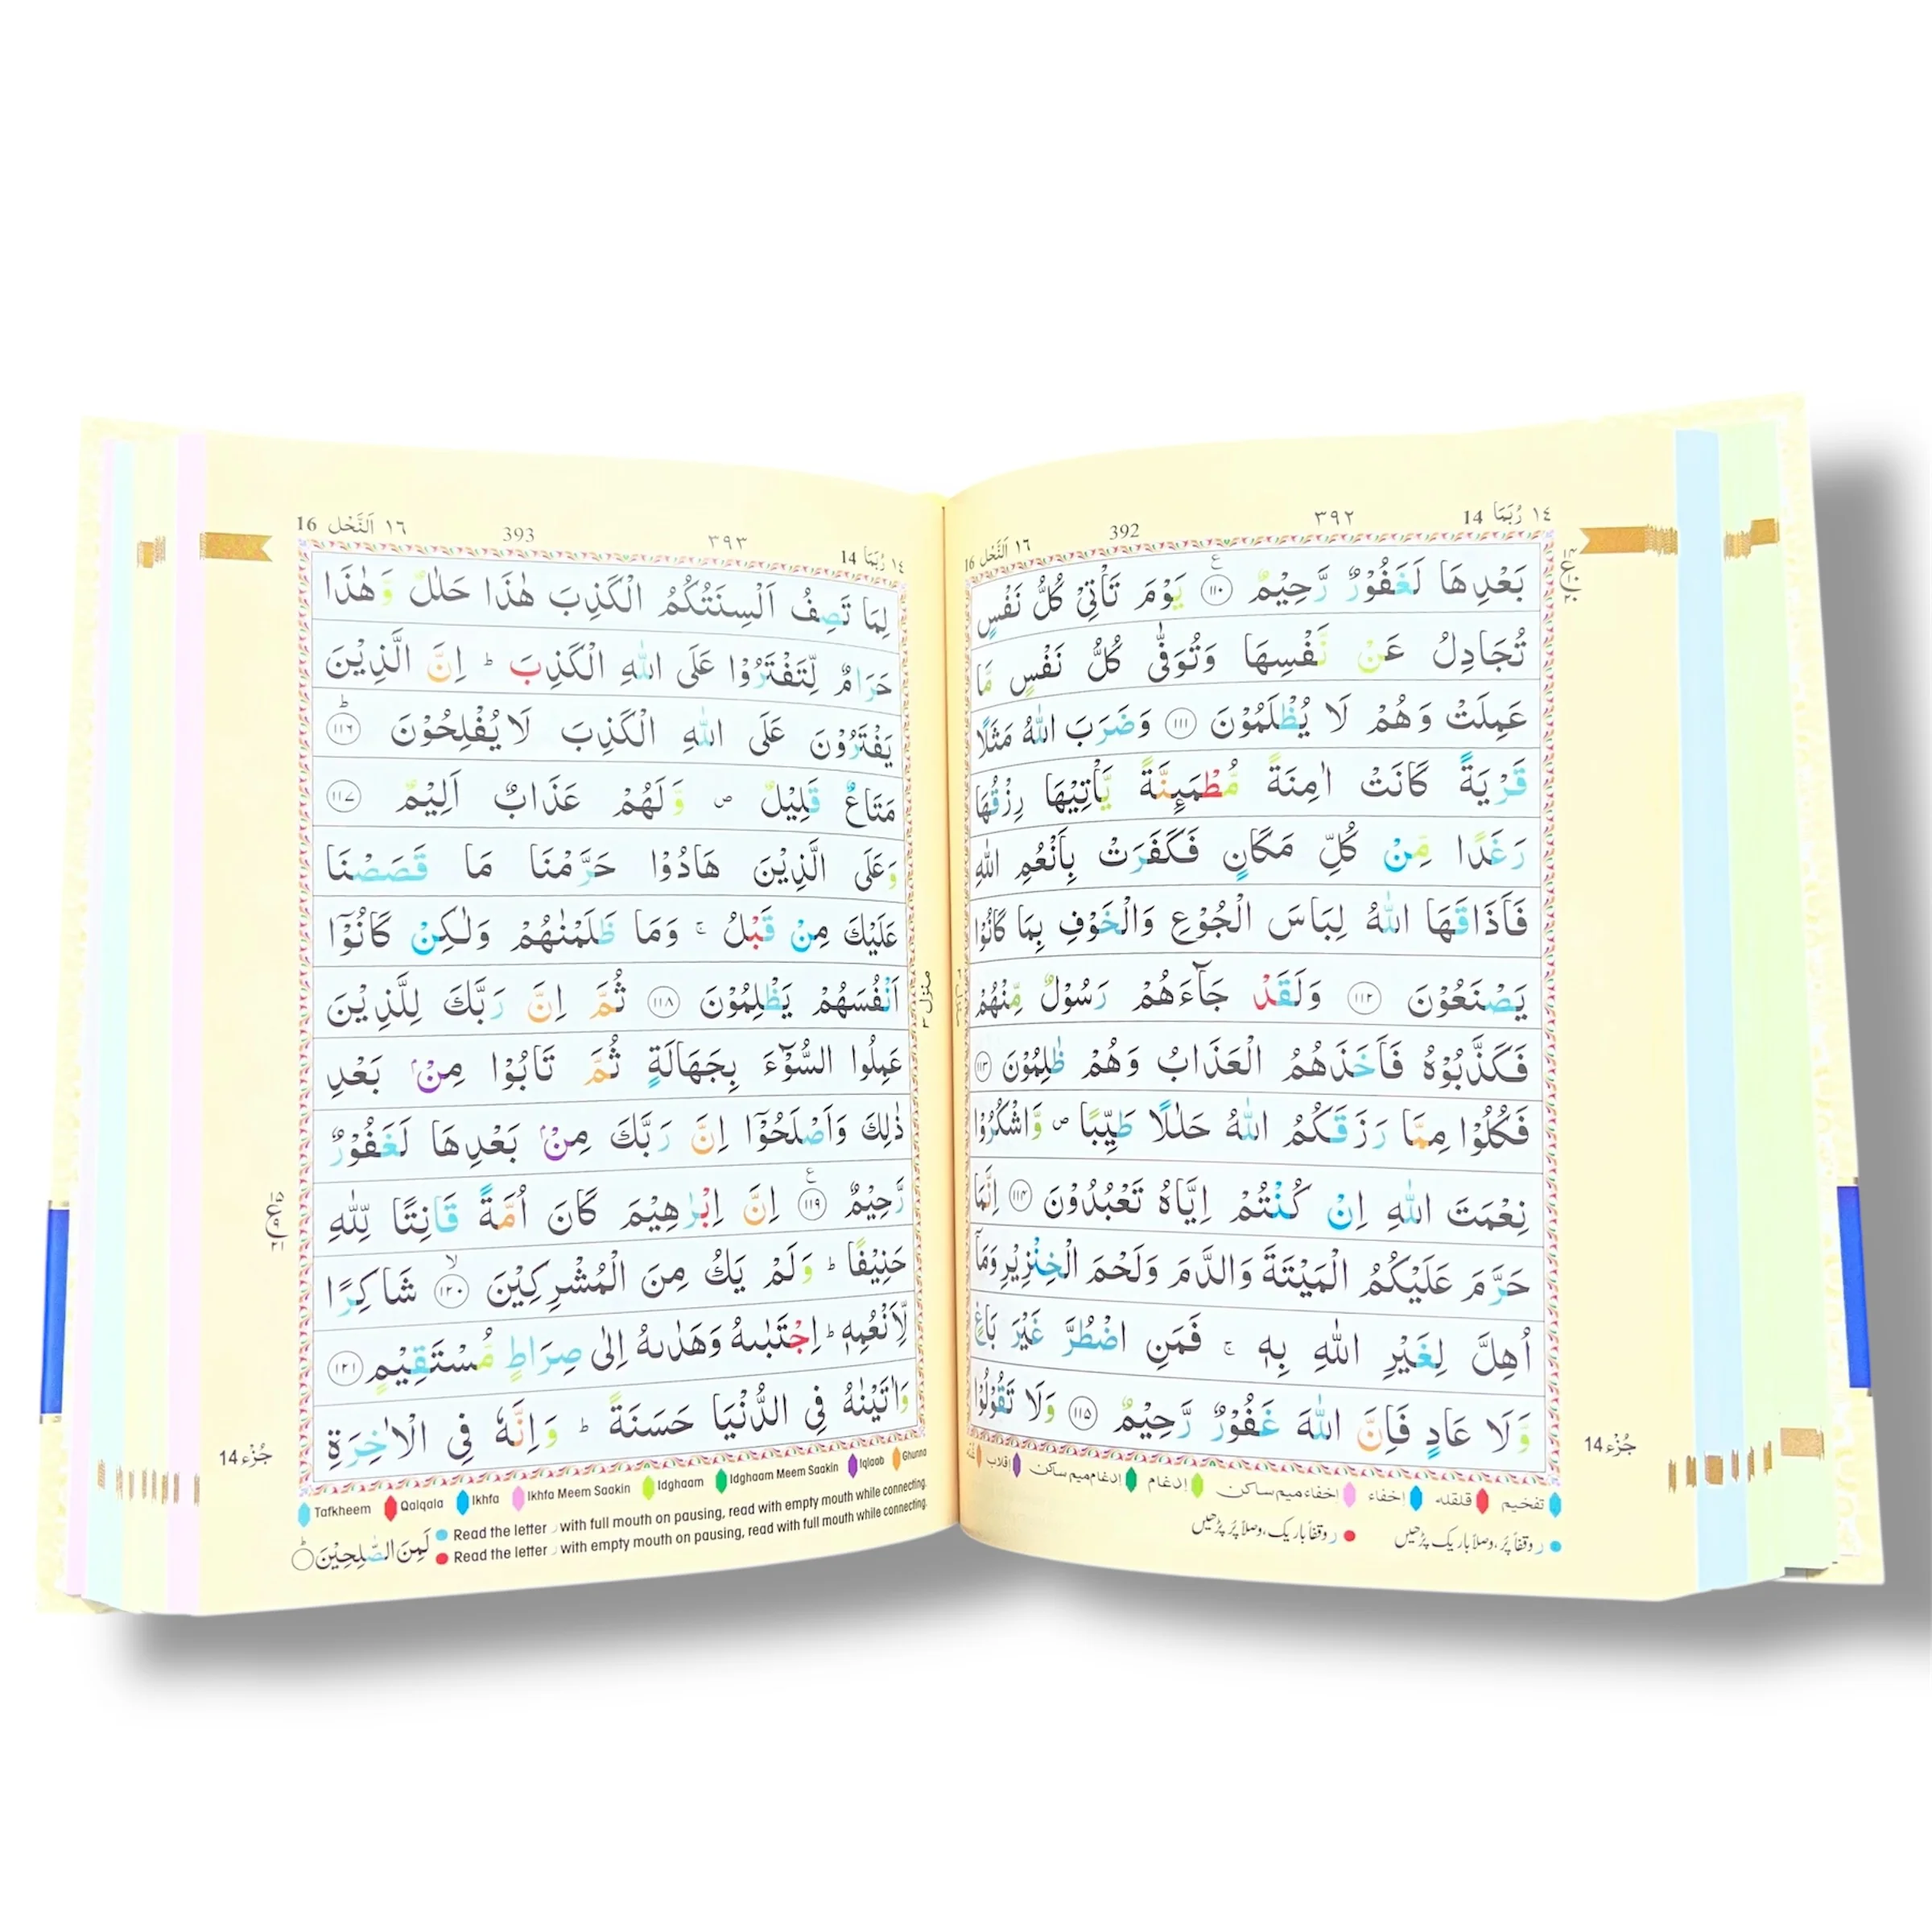 ١٤ رُبَمَا 14
٣٩٢
392
١٦ اَلنَّحْل 16
بَعْدِهَا لَغَفُوْرٌ رَّحِيْمٌ ۝١١٠ۧ يَوْمَ تَاْتِيْ كُلُّ نَفْسٍ
تُجَادِلُ عَنْ نَّفْسِهَا وَتُوَفّٰى كُلُّ نَفْسٍ مَّا
عَمِلَتْ وَهُمْ لَا يُظْلَمُوْنَ ۝١١١ وَضَرَبَ اللّٰهُ مَثَلًا
قَرْيَةً كَانَتْ اٰمِنَةً مُّطْمَىِٕنَّةً يَّاْتِيْهَا رِزْقُهَا
رَغَدًا مِّنْ كُلِّ مَكَانٍ فَكَفَرَتْ بِاَنْعُمِ اللّٰهِ
فَاَذَاقَهَا اللّٰهُ لِبَاسَ الْجُوْعِ وَالْخَوْفِ بِمَا كَانُوْا
يَصْنَعُوْنَ ۝١١٢ وَلَقَدْ جَآءَهُمْ رَسُوْلٌ مِّنْهُمْ
فَكَذَّبُوْهُ فَاَخَذَهُمُ الْعَذَابُ وَهُمْ ظٰلِمُوْنَ ۝١١٣
فَكُلُوْا مِمَّا رَزَقَكُمُ اللّٰهُ حَلٰلًا طَيِّبًا ص وَّاشْكُرُوْا
نِعْمَتَ اللّٰهِ اِنْ كُنْتُمْ اِيَّاهُ تَعْبُدُوْنَ ۝١١٤ اِنَّمَا
حَرَّمَ عَلَيْكُمُ الْمَيْتَةَ وَالدَّمَ وَلَحْمَ الْخِنْزِيْرِ وَمَآ
اُهِلَّ لِغَيْرِ اللّٰهِ بِهٖ ۚ فَمَنِ اضْطُرَّ غَيْرَ بَاغٍ
وَّلَا عَادٍ فَاِنَّ اللّٰهَ غَفُوْرٌ رَّحِيْمٌ ۝١١٥ وَلَا تَقُوْلُوْا
جُزْء 14
تفخیم قلقله إخفاء إخفاء میم ساکن إدغام إدغام میم ساکن إقلاب غنّہ
ر وقفاً پُر، وصلاً باریک پڑھیں ر وقفاً باریک، وصلاً پُر پڑھیں
١٤ رُبَمَا 14
٣٩٣
393
١٦ اَلنَّحْل 16
لِمَا تَصِفُ اَلْسِنَتُكُمُ الْكَذِبَ هٰذَا حَلٰلٌ وَّهٰذَا
حَرَامٌ لِّتَفْتَرُوْا عَلَى اللّٰهِ الْكَذِبَ ؕ اِنَّ الَّذِيْنَ
يَفْتَرُوْنَ عَلَى اللّٰهِ الْكَذِبَ لَا يُفْلِحُوْنَ ۝١١٦ؕ
مَتَاعٌ قَلِيْلٌ ص وَّلَهُمْ عَذَابٌ اَلِيْمٌ ۝١١٧
وَعَلَى الَّذِيْنَ هَادُوْا حَرَّمْنَا مَا قَصَصْنَا
عَلَيْكَ مِنْ قَبْلُ ۚ وَمَا ظَلَمْنٰهُمْ وَلٰكِنْ كَانُوْٓا
اَنْفُسَهُمْ يَظْلِمُوْنَ ۝١١٨ ثُمَّ اِنَّ رَبَّكَ لِلَّذِيْنَ
عَمِلُوا السُّوْٓءَ بِجَهَالَةٍ ثُمَّ تَابُوْا مِنْۢ بَعْدِ
ذٰلِكَ وَاَصْلَحُوْٓا اِنَّ رَبَّكَ مِنْۢ بَعْدِهَا لَغَفُوْرٌ
رَّحِيْمٌ ۝١١٩ۧ اِنَّ اِبْرٰهِيْمَ كَانَ اُمَّةً قَانِتًا لِّلّٰهِ
حَنِيْفًا ؕ وَلَمْ يَكُ مِنَ الْمُشْرِكِيْنَ ۝١٢٠ۙ شَاكِرًا
لِّاَنْعُمِهٖ ؕ اِجْتَبٰىهُ وَهَدٰىهُ اِلٰى صِرَاطٍ مُّسْتَقِيْمٍ ۝١٢١
وَاٰتَيْنٰهُ فِي الدُّنْيَا حَسَنَةً ؕ وَاِنَّهٗ فِي الْاٰخِرَةِ
منزل ٣
جُزْء 14
Tafkheem Qalqala Ikhfa Ikhfa Meem Saakin Idghaam Idghaam Meem Saakin Iqlaab Ghunna
Read the letter ر with full mouth on pausing, read with empty mouth while connecting.
Read the letter ر with empty mouth on pausing, read with full mouth while connecting.
لَمِنَ الصّٰلِحِيْنَ ۝ؕ